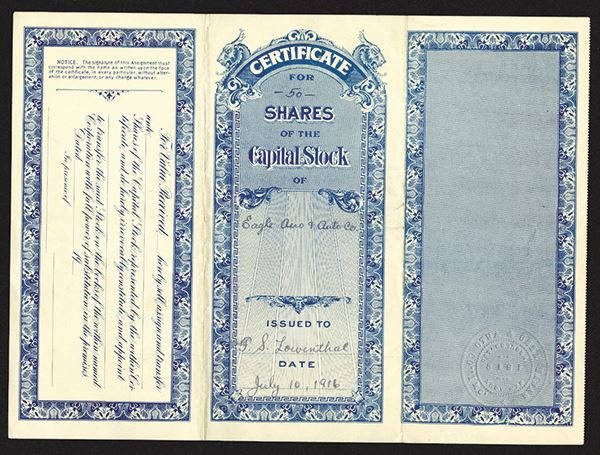 NOTICE. The signature of this Assignment must
correspond with the name as written upon the face
of the certificate, in every particular, without alter-
ation or enlargement, or any change whatever.
For Value Received, hereby sell, assign and transfer
unto
Shares of the Capital Stock represented by the within Cer-
tificate, and do hereby irrevocably constitute and appoint
to transfer the said Stock on the books of the within named
Corporation with full power of substitution in the premises.
Dated
In presence of
CERTIFICATE
FOR
-50-
SHARES
OF THE
Capital Stock
OF
Eagle Aero & Auto Co.
ISSUED TO
P. S. Lowenthal
DATE
July 10, 1916